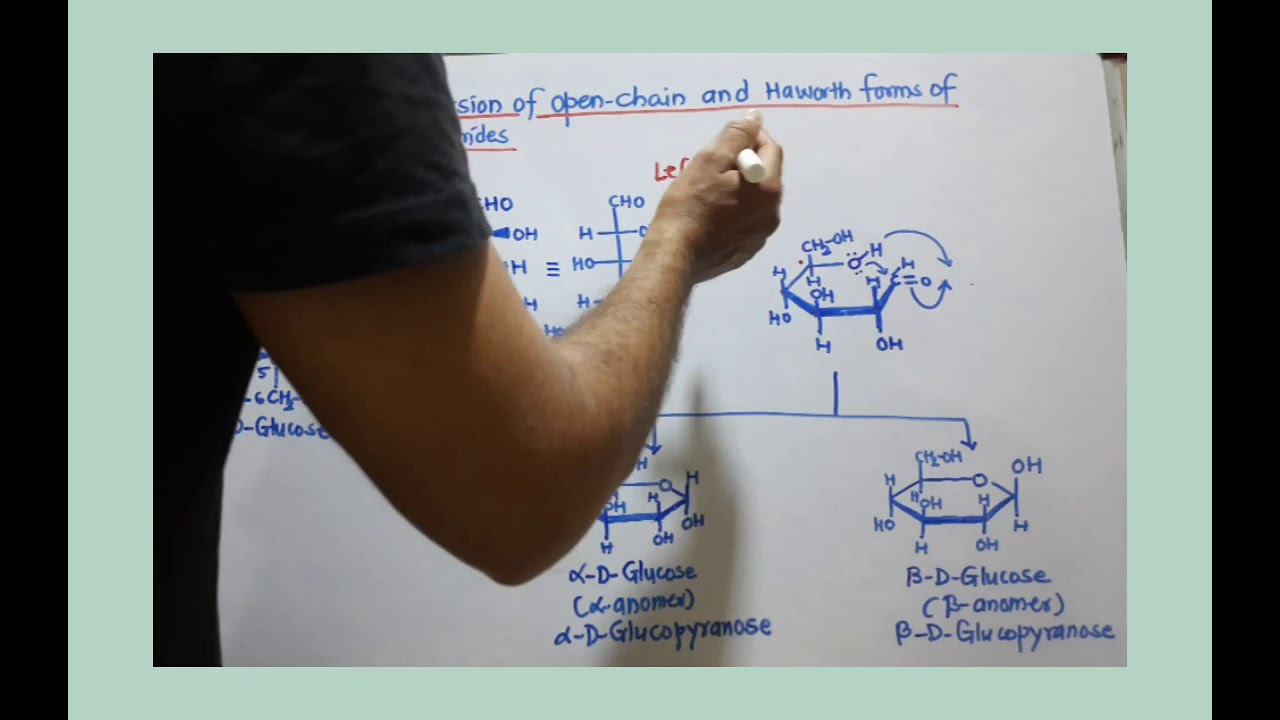 sion of open-chain and Haworth forms of
rides
Le
CHO
HO
OH
H
H
≡
H
HO
H
HO
5
6CH2
D-Glucose
CH2-OH
O
H
H
C=O
H
H
H
OH
HO
H
OH
H
O
H
H
OH
OH
H
OH
α-D-Glucose
(α-anomer)
α-D-Glucopyranose
CH2-OH
OH
H
O
H
OH
H
HO
H
H
OH
β-D-Glucose
(β-anomer)
β-D-Glucopyranose